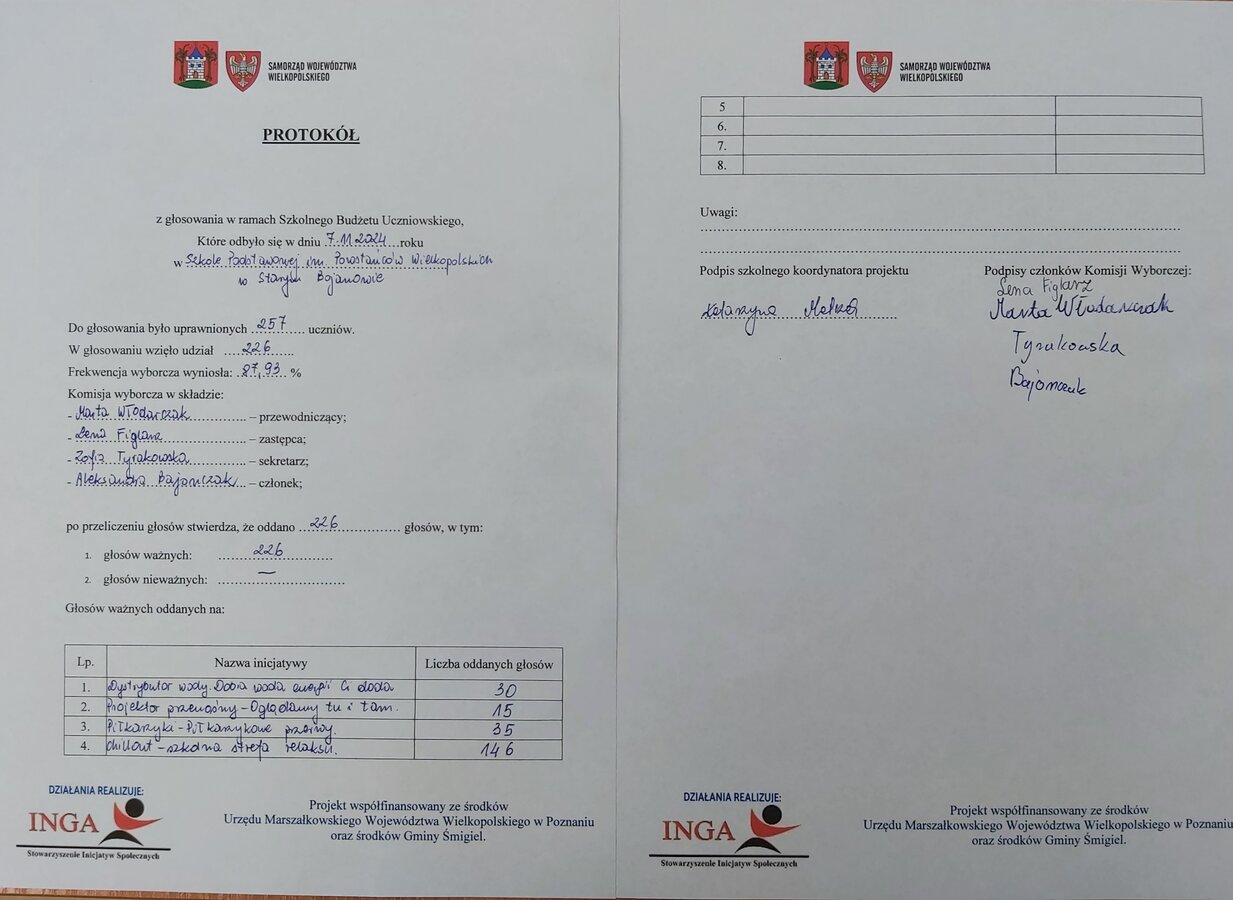 SAMORZĄD WOJEWÓDZTWA
WIELKOPOLSKIEGO
PROTOKÓŁ
z głosowania w ramach Szkolnego Budżetu Uczniowskiego,
Które odbyło się w dniu 7.11.2024 roku
w Szkole Podstawowej im. Powstańców Wielkopolskich
w Starym Bojanowie
Do głosowania było uprawnionych 257 uczniów.
W głosowaniu wzięło udział 226
Frekwencja wyborcza wyniosła: 87,93 %
Komisja wyborcza w składzie:
- Marta Włodarczak – przewodniczący;
- Lena Figlarz – zastępca;
- Zofia Tyrakowska – sekretarz;
- Aleksandra Bajończak – członek;
po przeliczeniu głosów stwierdza, że oddano 226 głosów, w tym:
1. głosów ważnych: 226
2. głosów nieważnych: —
Głosów ważnych oddanych na:
Lp. Nazwa inicjatywy Liczba oddanych głosów
1. Dystrybutor wody. Dobra woda energii Ci doda 30
2. Projektor przenośny - Oglądamy tu i tam. 15
3. Piłkarzyki - Piłkarzykowe przerwy. 35
4. Chillout - szkolna strefa relaksu. 146
DZIAŁANIA REALIZUJE:
INGA
Stowarzyszenie Inicjatyw Społecznych
Projekt współfinansowany ze środków
Urzędu Marszałkowskiego Województwa Wielkopolskiego w Poznaniu
oraz środków Gminy Śmigiel.
SAMORZĄD WOJEWÓDZTWA
WIELKOPOLSKIEGO
5
6.
7.
8.
Uwagi:
Podpis szkolnego koordynatora projektu
Katarzyna
Podpisy członków Komisji Wyborczej:
Lena Figlarz
Marta Włodarczak
Tyrakowska
Bajończak
DZIAŁANIA REALIZUJE:
INGA
Stowarzyszenie Inicjatyw Społecznych
Projekt współfinansowany ze środków
Urzędu Marszałkowskiego Województwa Wielkopolskiego w Poznaniu
oraz środków Gminy Śmigiel.